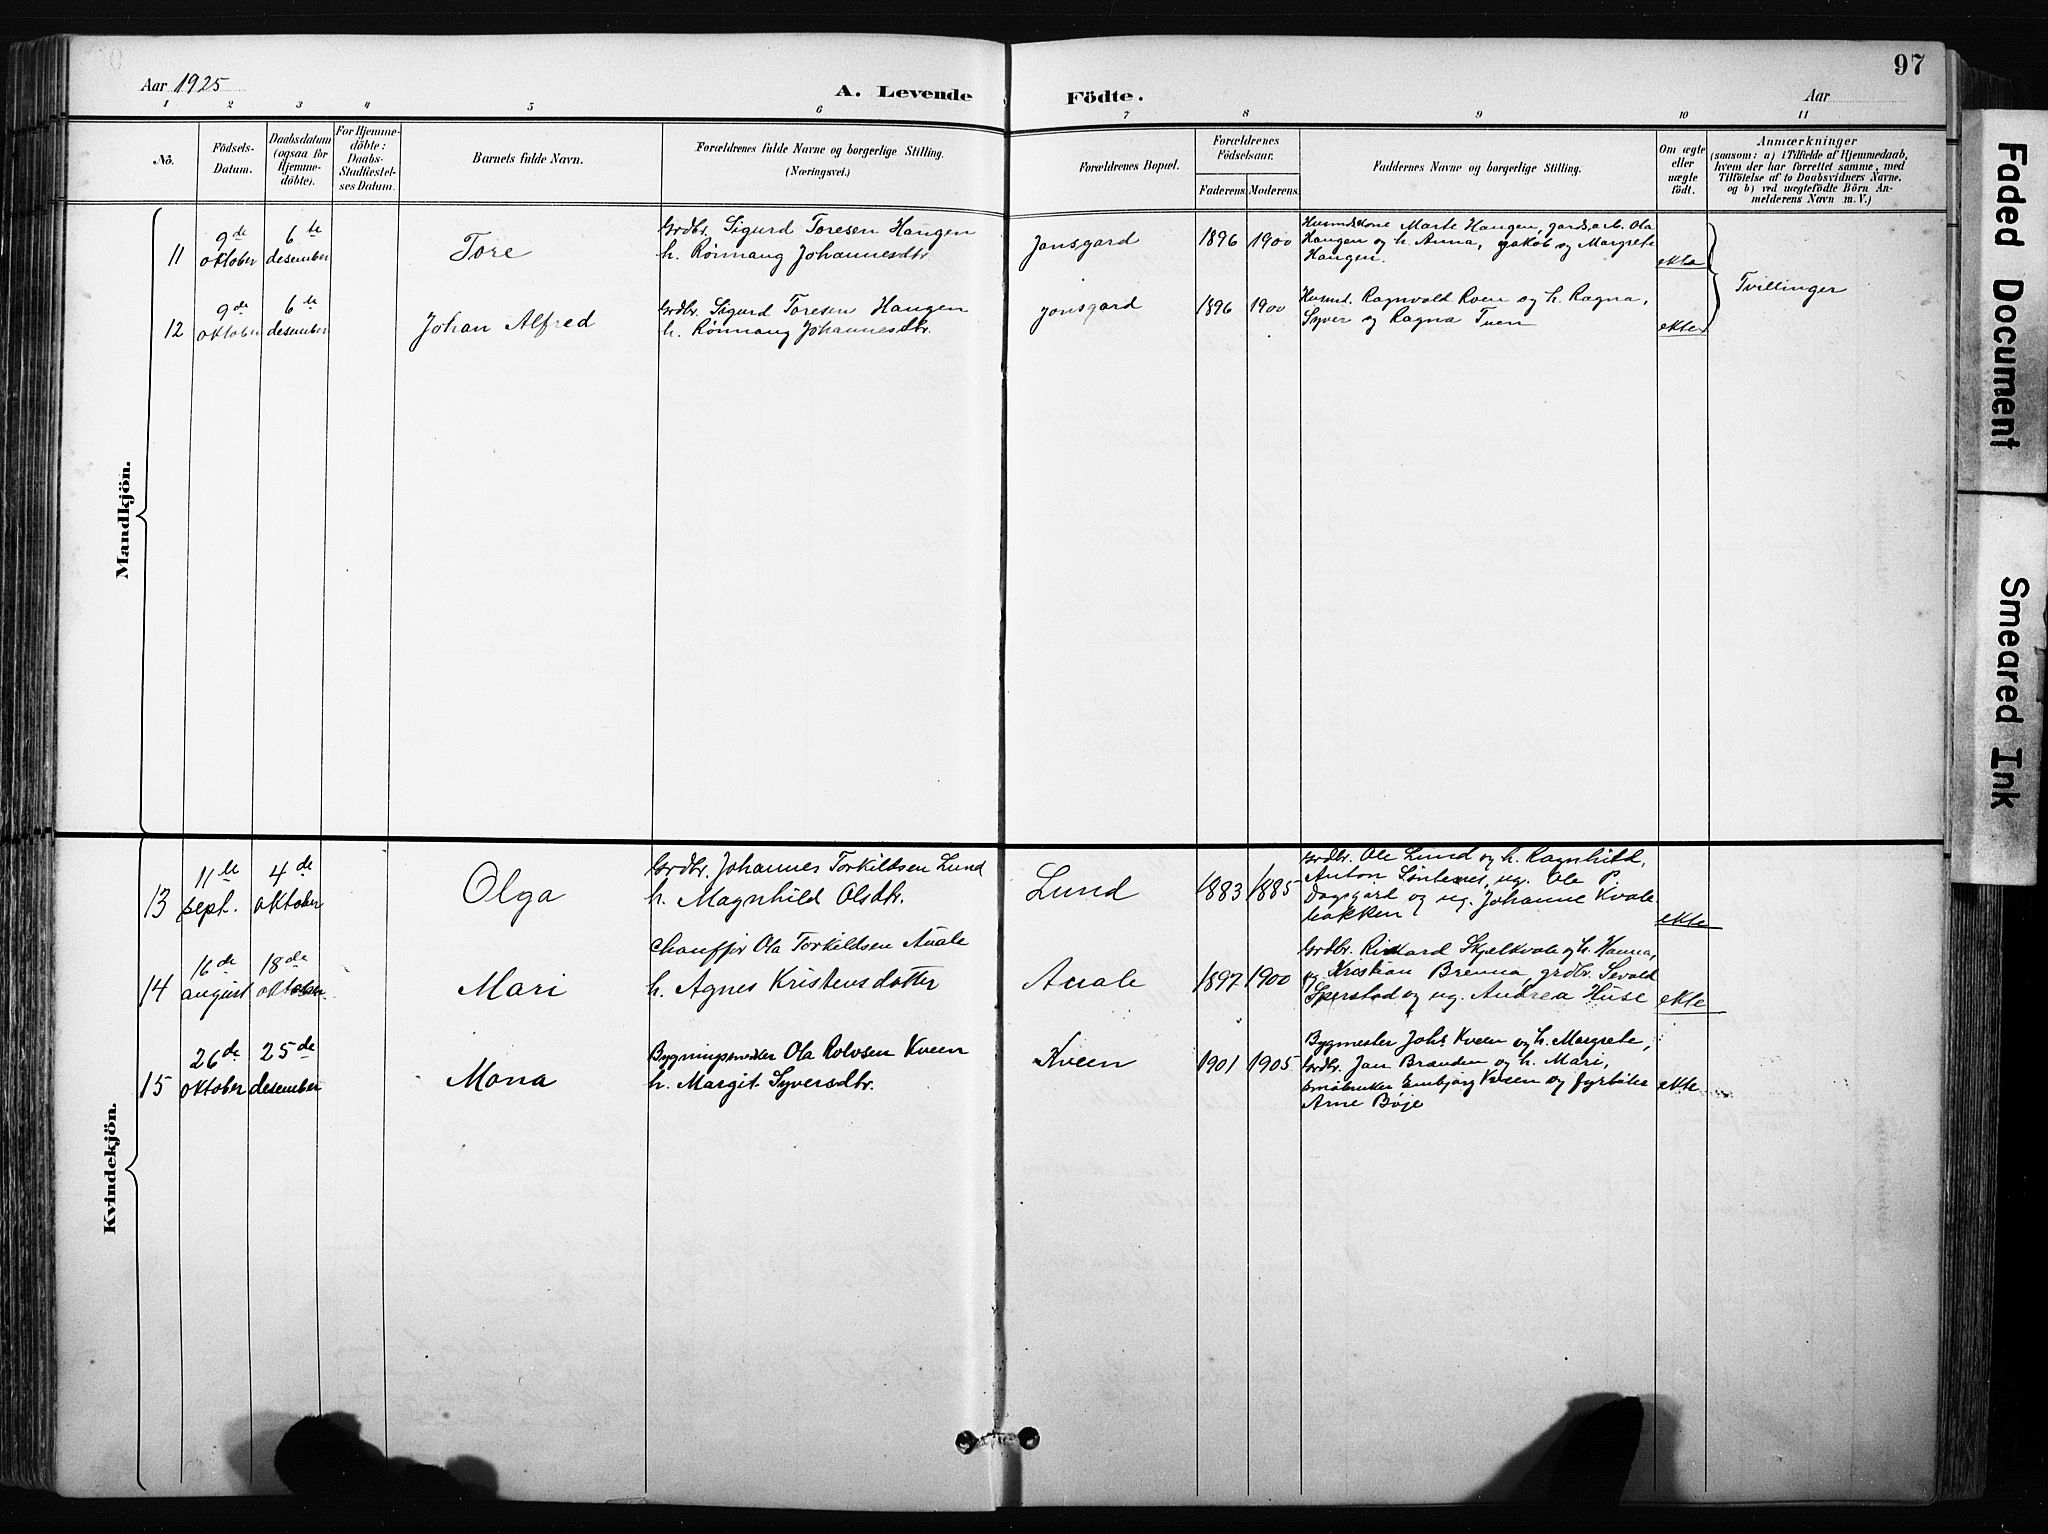 97
Aar 1925
A. Levende Födte.
Aar
1 2 3 4 5 6 7 8 9 10 11
Nö.
Födsels-
Datum.
Daabsdatum
(ogsaa for
Hjemme-
döbte).
For Hjemme-
döbte:
Daabs-
Stadfæstel-
ses Datum.
Barnets fulde Navn.
Forældrenes fulde Navne og borgerlige Stilling.
(Næringsvei.)
Forældrenes Bopæl.
Forældrenes
Födselsaar.
Faderens. Moderens.
Faddernes Navne og borgerlige Stilling.
Om ægte
eller
uægte
födt.
Anmærkninger
(saasom: a) i Tilfælde af Hjemmedaab,
hvem der har forrettet samme, med
Tilföielse af to Daabsvidners Navne.
og b) ved uægtefödte Börn An-
melderens Navn m. V.)
Mandkjön.
11
9de
oktober
6te
desember
Tore
Grdbr. Sigurd Toresen Haugen
h. Rönnaug Johannesdtr
Jonsgard
1896 1900
Husmdskone Marte Haugen, gards.arb. Ola
Haugen og h. Anna, Jakob og Margrete
Haugen.
ekte
Tvillinger
12
9de
oktober
6te
desember
Johan Alfred
Grdbr. Sigurd Toresen Haugen
h. Rönnaug Johannesdtr.
Jonsgard
1896 1900
Husmd. Ragnvald Roen og h. Ragna,
Syver og Ragna Tuen
ekte
Kvindekjön.
13
11te
sept.
4de
oktober
Olga
Grdbr. Johannes Torkildsen Lund
h. Magnhild Olsdtr.
Lund
1883 1885
Grdbr. Ole Lund og h. Ragnhild,
Anton ug. Ole P.
Dagsgard og ug. Johanne Kvale-
bakken
ekte
14
16de
august
18de
oktober
Mari
Chauffør Ola Torkildsen Auale
h. Agnes Kristensdotter
Auale
1897 1900
Grdbr. Rikard Skjelkvale og h. Hanna,
Kristian Brenna, grdbr. Sevald
og ug. Andrea Huse
ekte
15
26de
oktober
25de
desember
Mona
Bygningssnekker Ola Rolvsen Kveen
h. Margit Syversdtr.
Kveen
1901 1905
Bygmester Johs Kveen og h. Margrete,
Grdbr. Jan Branden og h. Mari,
Kveen og fyrbøter
Arne Bøje
ekte
Faded Document
Smeared Ink